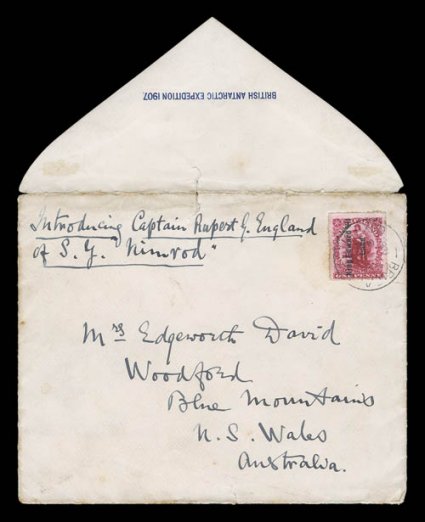 BRITISH ANTARCTIC EXPEDITION 1907.
Introducing Captain Rupert G. England
of S. Y. "Nimrod"
Mrs Edgeworth David
Woodford
Blue Mountains
N. S. Wales
Australia.